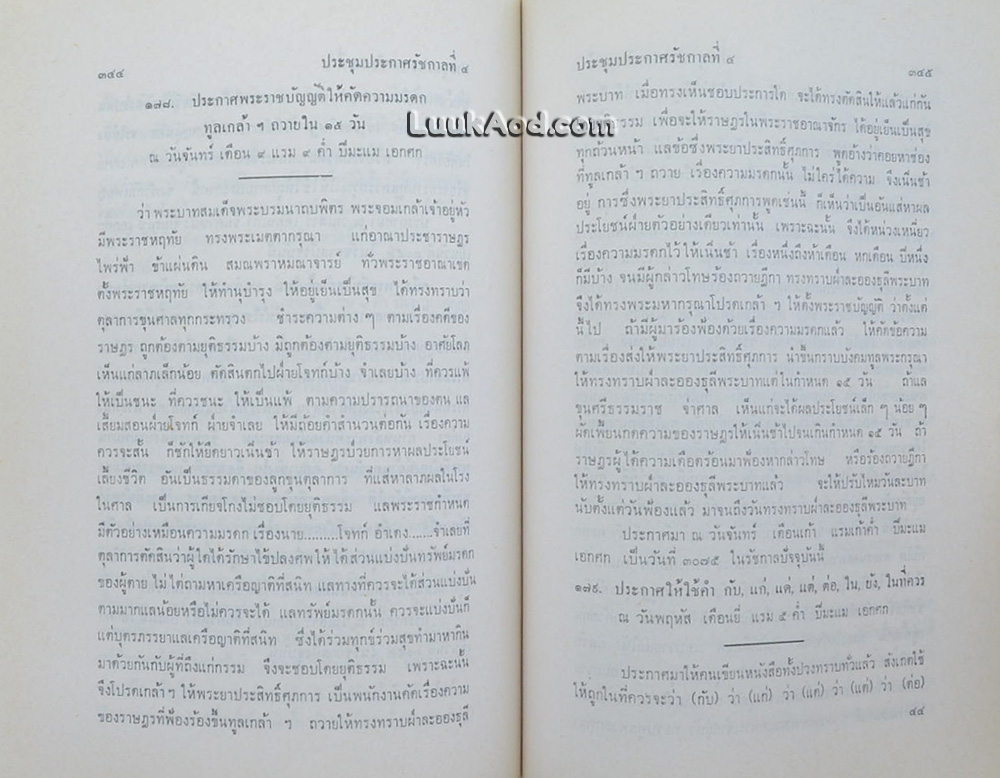 ๓๔๔
ประชุมประกาศรัชกาลที่ ๔
๑๗๘. ประกาศพระราชบัญญัติให้คัดความมรดก
ทูลเกล้า ฯ ถวายใน ๑๕ วัน
ณ วันจันทร์ เดือน ๙ แรม ๙ ค่ำ ปีมะแม เอกศก
ว่า พระบาทสมเด็จพระบรมนาถบพิตร พระจอมเกล้าเจ้าอยู่หัว
มีพระราชหฤทัย ทรงพระเมตตากรุณา แก่อาณาประชาราษฎร
ไพร่ฟ้า ข้าแผ่นดิน สมณพราหมณาจารย์ ทั่วพระราชอาณาเขต
ตั้งพระราชหฤทัย ให้ทำนุบำรุง ให้อยู่เย็นเป็นสุข ได้ทรงทราบว่า
ตุลาการขุนศาลทุกกระทรวง ชำระความต่าง ๆ ตามเรื่องคดีของ
ราษฎร ถูกต้องตามยุติธรรมบ้าง มิถูกต้องตามยุติธรรมบ้าง อาศัยโลภ
เห็นแก่ลาภเล็กน้อย ตัดสินตกไปฝ่ายโจทก์บ้าง จำเลยบ้าง ที่ควรแพ้
ให้เป็นชนะ ที่ควรชนะ ให้เป็นแพ้ ตามความปรารถนาของตน แล
เสี้ยมสอนฝ่ายโจทก์ ฝ่ายจำเลย ให้มีถ้อยคำสำนวนต่อกัน เรื่องความ
ควรจะสั้น ก็ชักให้ยืดยาวเนิ่นช้า ให้ราษฎรป่วยการหาผลประโยชน์
เลี้ยงชีวิต อันเป็นธรรมดาของลูกขุนตุลาการ ที่แส่หาลาภผลในโรง
ในศาล เป็นการเกียจโกงไม่ชอบโดยยุติธรรม แลพระราชกำหนด
มีตัวอย่างเหมือนความมรดก เรื่องนาย.........โจทก์ อำแดง......จำเลยที่
ตุลาการตัดสินว่าผู้ใดได้รักษาไข้ปลงศพ ให้ได้ส่วนแบ่งปันทรัพย์มรดก
ของผู้ตาย ไม่ได้ถามหาเครือญาติที่สนิท แลทางที่ควรจะได้ส่วนแบ่งปัน
ตามมากแลน้อยหรือไม่ควรจะได้ แลทรัพย์มรดกนั้น ควรจะแบ่งปันก็
แต่บุตรภรรยาแลเครือญาติที่สนิท ซึ่งได้ร่วมทุกข์ร่วมสุขทำมาหากิน
มาด้วยกันกับผู้ที่ถึงแก่กรรม จึงจะชอบโดยยุติธรรม เพราะฉะนั้น
จึงโปรดเกล้า ฯ ให้พระยาประสิทธิ์ศุภการ เป็นพนักงานคัดเรื่องความ
ของราษฎรที่ฟ้องร้องขึ้นทูลเกล้า ฯ ถวายให้ทรงทราบฝ่าละอองธุลี
ประชุมประกาศรัชกาลที่ ๔
๓๔๕
พระบาท เมื่อทรงเห็นชอบประการใด จะได้ทรงตัดสินให้แล้วแก่กัน
ธรรม เพื่อจะให้ราษฎรในพระราชอาณาจักร ได้อยู่เย็นเป็นสุข
LuukAod.com
ทุกถ้วนหน้า แลข้อซึ่งพระยาประสิทธิ์ศุภการ พูดอ้างว่าคอยหาช่อง
ที่ทูลเกล้า ฯ ถวาย เรื่องความมรดกนั้น ไม่ใคร่ได้ความ จึงเนิ่นช้า
อยู่ การซึ่งพระยาประสิทธิ์ศุภการพูดเช่นนี้ ก็เห็นว่าเป็นอันแส่หาผล
ประโยชน์ฝ่ายตัวอย่างเดียวเท่านั้น เพราะฉะนั้น จึงได้หน่วงเหนี่ยว
เรื่องความมรดกไว้ให้เนิ่นช้า เรื่องหนึ่งถึงห้าเดือน หกเดือน ปีหนึ่ง
ก็มีบ้าง จนมีผู้กล่าวโทษร้องถวายฎีกา ทรงทราบฝ่าละอองธุลีพระบาท
จึงได้ทรงพระมหากรุณาโปรดเกล้า ฯ ให้ตั้งพระราชบัญญัติ ว่าตั้งแต่
นี้ไป ถ้ามีผู้มาร้องฟ้องด้วยเรื่องความมรดกแล้ว ให้คัดข้อความ
ตามเรื่องส่งให้พระยาประสิทธิ์ศุภการ นำขึ้นกราบบังคมทูลพระกรุณา
ให้ทรงทราบฝ่าละอองธุลีพระบาทแต่ในกำหนด ๑๕ วัน ถ้าแล
ขุนศรีธรรมราช จ่าศาล เห็นแก่จะได้ผลประโยชน์เล็ก ๆ น้อย ๆ
ผัดเพี้ยนกดความของราษฎรให้เนิ่นช้าไปจนเกินกำหนด ๑๕ วัน ถ้า
ราษฎรผู้ได้ความเดือดร้อนมาฟ้องหากล่าวโทษ หรือร้องถวายฎีกา
ให้ทรงทราบฝ่าละอองธุลีพระบาทแล้ว จะให้ปรับไหมวันละบาท
นับตั้งแต่วันฟ้องแล้ว มาจนถึงวันทรงทราบฝ่าละอองธุลีพระบาท
ประกาศมา ณ วันจันทร์ เดือนเก้า แรมเก้าค่ำ ปีมะแม
เอกศก เป็นวันที่ ๓๐๗๕ ในรัชกาลปัจจุบันนี้
๑๗๙. ประกาศให้ใช้คำ กับ, แก่, แด่, แต่, ต่อ, ใน, ยัง, ในที่ควร
ณ วันพฤหัส เดือนยี่ แรม ๕ ค่ำ ปีมะแม เอกศก
ประกาศมาให้คนเขียนหนังสือทั้งปวงทราบทั่วแล้ว สังเกตใช้
ให้ถูกในที่ควรจะว่า (กับ) ว่า (แก่) ว่า (แด่) ว่า (แต่) ว่า (ต่อ)
๔๔